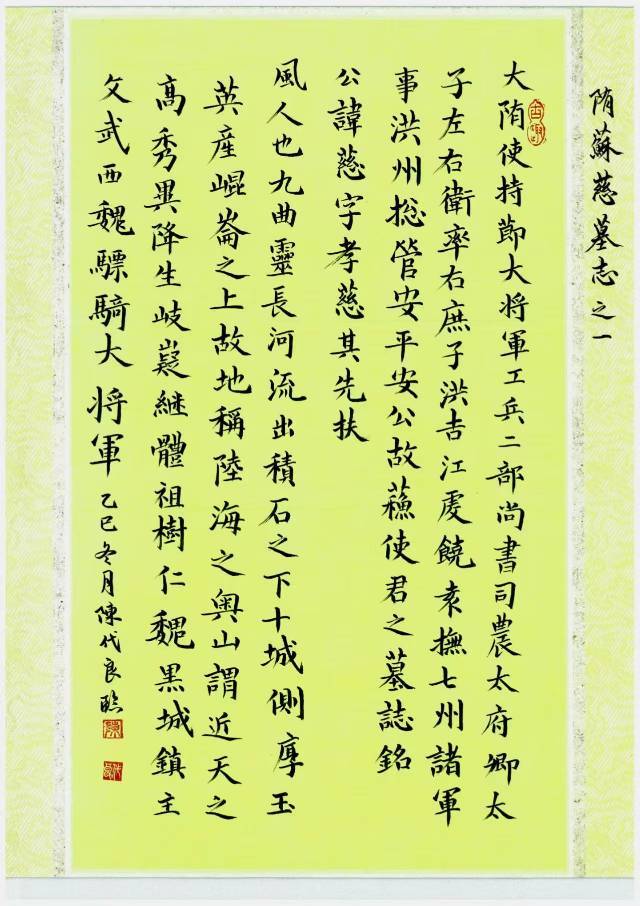 陏蘇慈墓志之一
大陏使持節大将軍工兵二部尚書司農太府卿太
子左右衛率右庶子洪吉江虔饒袁撫七州諸軍
事洪州捴管安平安公故蘓使君之墓誌銘
公諱慈字孝慈其先扶
風人也九曲靈長河流出積石之下十城側厚玉
英産崐崙之上故地稱陸海之奥山謂近天之
高秀異降生岐嶷継體祖樹仁魏黒城鎮主
文武西魏驃騎大将軍乙巳冬月陳代良臨